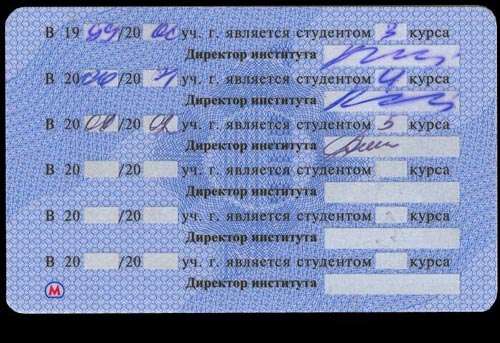 В 19 99/20 00 уч. г. является студентом 3 курса
Директор института
В 20 00/20 01 уч. г. является студентом 4 курса
Директор института
В 20 01/20 02 уч. г. является студентом 5 курса
Директор института
В 20 /20 уч. г. является студентом курса
Директор института
В 20 /20 уч. г. является студентом курса
Директор института
В 20 /20 уч. г. является студентом курса
Директор института
М